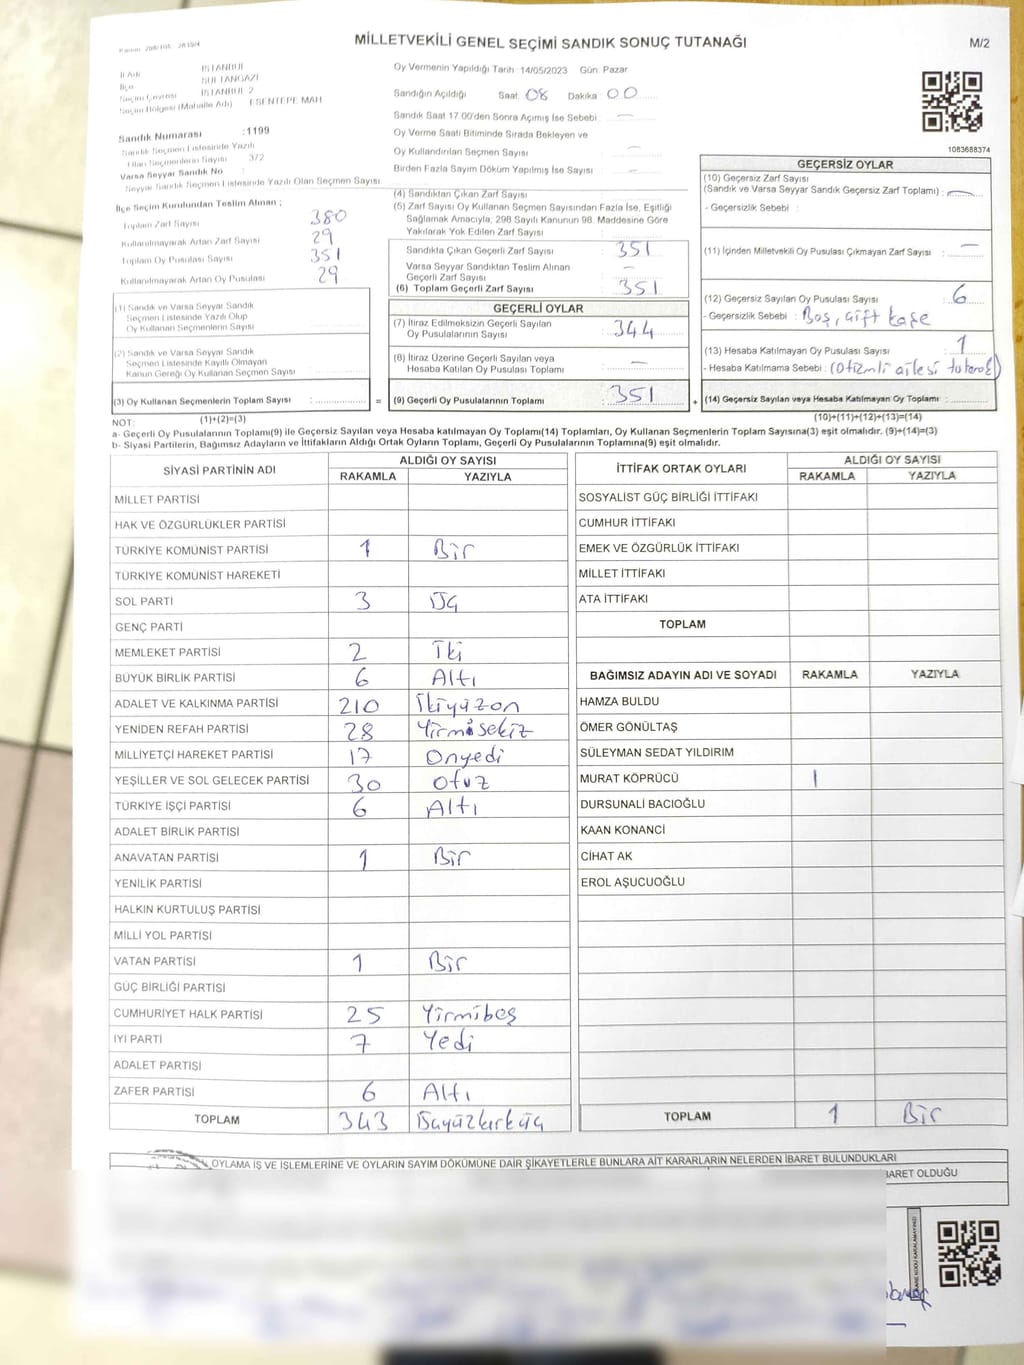 MİLLETVEKİLİ GENEL SEÇİMİ SANDIK SONUÇ TUTANAĞI
M/2
İl Adı İSTANBUL
İlçe SULTANGAZİ
Seçim Çevresi İSTANBUL 2
Seçim Bölgesi (Mahalle Adı) ESENTEPE MAH
Sandık Numarası :1199
Sandık Seçmen Listesinde Yazılı
Olan Seçmenlerin Sayısı 372
Varsa Seyyar Sandık No :
Seyyar Sandık Seçmen Listesinde Yazılı Olan Seçmen Sayısı
İlçe Seçim Kurulundan Teslim Alınan ;
Toplam Zarf Sayısı 380
Kullanılmayarak Artan Zarf Sayısı 29
Toplam Oy Pusulası Sayısı 351
Kullanılmayarak Artan Oy Pusulası 29
(1) Sandık ve Varsa Seyyar Sandık
Seçmen Listesinde Yazılı Olup
Oy Kullanan Seçmenlerin Sayısı
(2) Sandık ve Varsa Seyyar Sandık
Seçmen Listesinde Kayıtlı Olmayan
Kanun Gereği Oy Kullanan Seçmen Sayısı
(3) Oy Kullanan Seçmenlerin Toplam Sayısı : =
Oy Vermenin Yapıldığı Tarih :14/05/2023 Gün: Pazar
Sandığın Açıldığı Saat: 08 Dakika: 00
Sandık Saat 17.00'den Sonra Açımış İse Sebebi : —
Oy Verme Saati Bitiminde Sırada Bekleyen ve
Oy Kullandırılan Seçmen Sayısı : —
Birden Fazla Sayım Döküm Yapılmış İse Sayısı : —
(4) Sandıktan Çıkan Zarf Sayısı
(5) Zarf Sayısı Oy Kullanan Seçmen Sayısından Fazla İse, Eşitliği
Sağlamak Amacıyla, 298 Sayılı Kanunun 98. Maddesine Göre
Yakılarak Yok Edilen Zarf Sayısı :
Sandıkta Çıkan Geçerli Zarf Sayısı : 351
Varsa Seyyar Sandıktan Teslim Alınan
Geçerli Zarf Sayısı : —
(6) Toplam Geçerli Zarf Sayısı : 351
GEÇERLİ OYLAR
(7) İtiraz Edilmeksizin Geçerli Sayılan
Oy Pusulalarının Sayısı : 344
(8) İtiraz Üzerine Geçerli Sayılan veya
Hesaba Katılan Oy Pusulası Toplamı : —
(9) Geçerli Oy Pusulalarının Toplamı : 351 +
1083688374
GEÇERSİZ OYLAR
(10) Geçersiz Zarf Sayısı
(Sandık ve Varsa Seyyar Sandık Geçersiz Zarf Toplamı) : —
- Geçersizlik Sebebi :
(11) İçinden Milletvekili Oy Pusulası Çıkmayan Zarf Sayısı : —
(12) Geçersiz Sayılan Oy Pusulası Sayısı : 6
- Geçersizlik Sebebi : Boş, çift kaşe
(13) Hesaba Katılmayan Oy Pusulası Sayısı : 1
- Hesaba Katılmama Sebebi : (Otizmli ailesi
(14) Geçersiz Sayılan veya Hesaba Katılmayan Oy Toplamı :
NOT: (1)+(2)=(3) (10)+(11)+(12)+(13)=(14)
a- Geçerli Oy Pusulalarının Toplamı(9) ile Geçersiz Sayılan veya Hesaba Katılmayan Oy Toplamı(14) Toplamları, Oy Kullanan Seçmenlerin Toplam Sayısına(3) eşit olmalıdır. (9)+(14)=(3)
b- Siyasi Partilerin, Bağımsız Adayların ve İttifakların Aldığı Ortak Oyların Toplamı, Geçerli Oy Pusulalarının Toplamına(9) eşit olmalıdır.
SİYASİ PARTİNİN ADI ALDIĞI OY SAYISI
RAKAMLA YAZIYLA
MİLLET PARTİSİ
HAK VE ÖZGÜRLÜKLER PARTİSİ
TÜRKİYE KOMÜNİST PARTİSİ 1 Bir
TÜRKİYE KOMÜNİST HAREKETİ
SOL PARTİ 3 Üç
GENÇ PARTİ
MEMLEKET PARTİSİ 2 İki
BÜYÜK BİRLİK PARTİSİ 6 Altı
ADALET VE KALKINMA PARTİSİ 210 İkiyüzon
YENİDEN REFAH PARTİSİ 28 Yirmisekiz
MİLLİYETÇİ HAREKET PARTİSİ 17 Onyedi
YEŞİLLER VE SOL GELECEK PARTİSİ 30 Otuz
TÜRKİYE İŞÇİ PARTİSİ 6 Altı
ADALET BİRLİK PARTİSİ
ANAVATAN PARTİSİ 1 Bir
YENİLİK PARTİSİ
HALKIN KURTULUŞ PARTİSİ
MİLLİ YOL PARTİSİ
VATAN PARTİSİ 1 Bir
GÜÇ BİRLİĞİ PARTİSİ
CUMHURİYET HALK PARTİSİ 25 Yirmibeş
İYİ PARTİ 7 Yedi
ADALET PARTİSİ
ZAFER PARTİSİ 6 Altı
TOPLAM 343 Üçyüzkırküç
İTTİFAK ORTAK OYLARI ALDIĞI OY SAYISI
RAKAMLA YAZIYLA
SOSYALİST GÜÇ BİRLİĞİ İTTİFAKI
CUMHUR İTTİFAKI
EMEK VE ÖZGÜRLÜK İTTİFAKI
MİLLET İTTİFAKI
ATA İTTİFAKI
TOPLAM
BAĞIMSIZ ADAYIN ADI VE SOYADI RAKAMLA YAZIYLA
HAMZA BULDU
ÖMER GÖNÜLTAŞ
SÜLEYMAN SEDAT YILDIRIM
MURAT KÖPRÜCÜ 1
DURSUNALİ BACIOĞLU
KAAN KONANCİ
CİHAT AK
EROL AŞUCUOĞLU
TOPLAM 1 Bir
OYLAMA İŞ VE İŞLEMLERİNE VE OYLARIN SAYIM DÖKÜMÜNE DAİR ŞİKAYETLERLE BUNLARA AİT KARARLARIN NELERDEN İBARET BULUNDUKLARI
BARET OLDUĞU